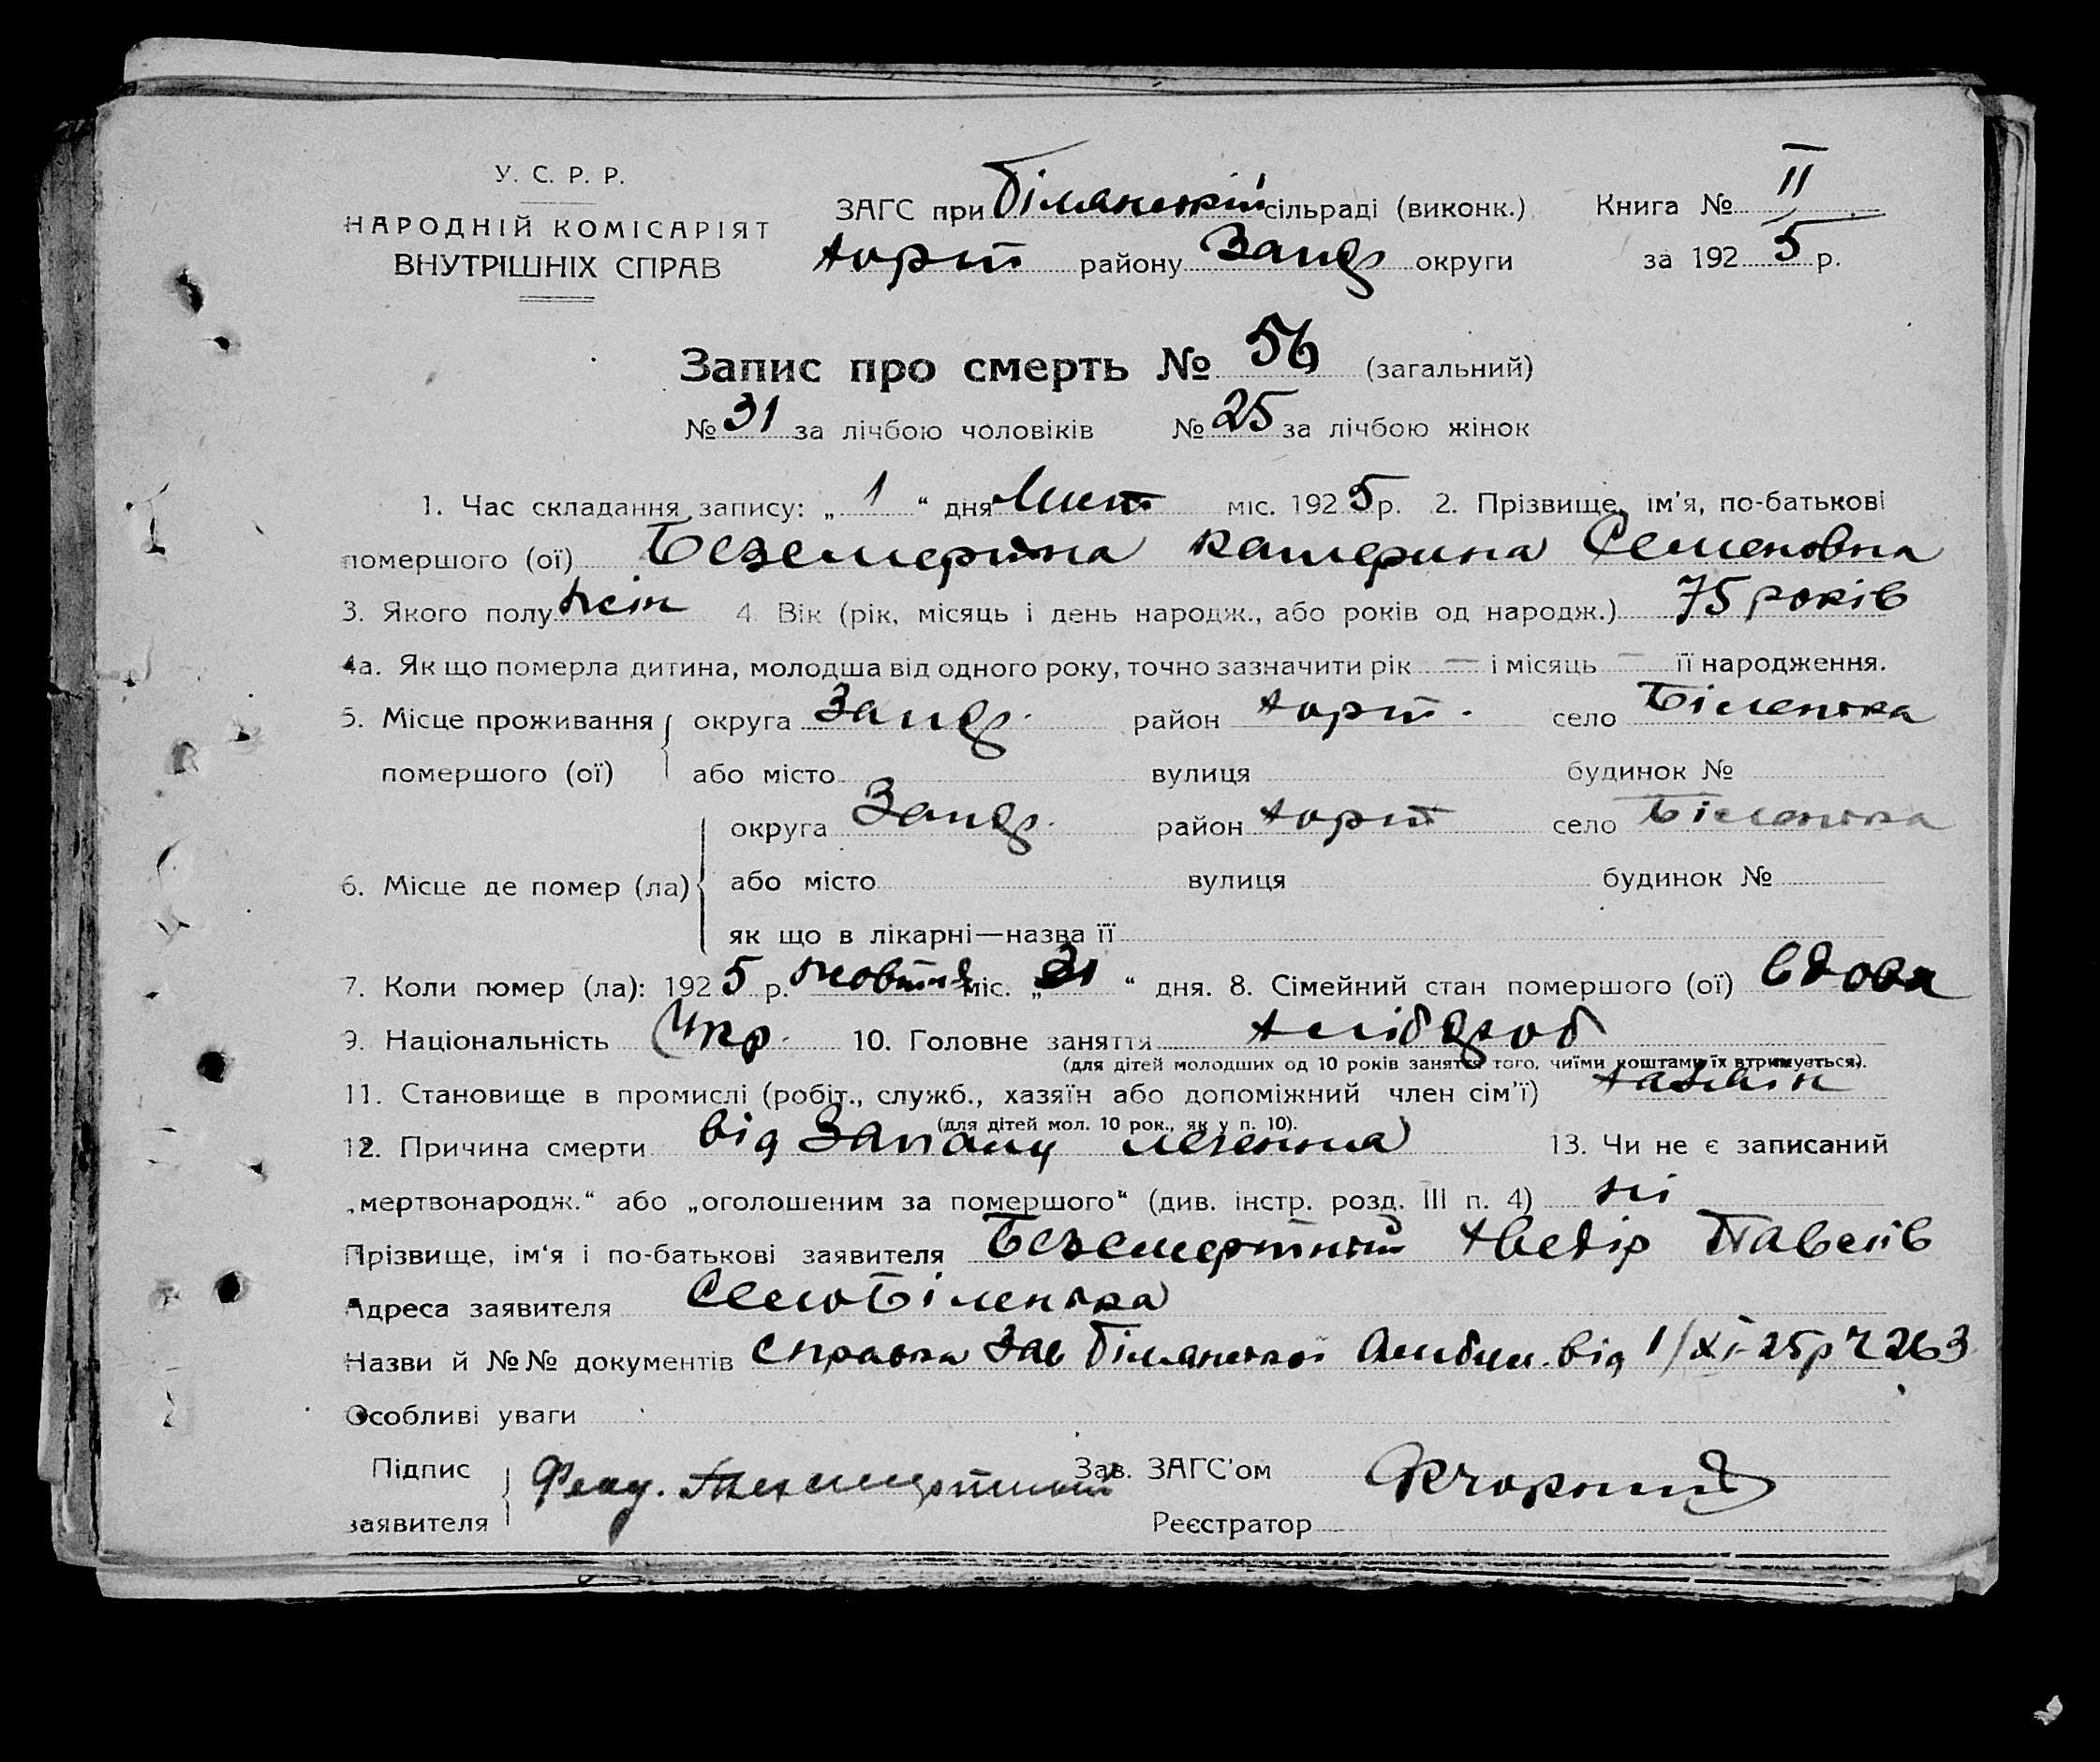 У. С. Р. Р.
НАРОДНІЙ КОМІСАРІЯТ
ВНУТРІШНІХ СПРАВ
ЗАГС при Білянській сільраді (виконк.)
Хорт району Запор округи
Книга № II
за 1925 р.
Запис про смерть № 56 (загальний)
№ 31 за лічбою чоловіків № 25 за лічбою жінок
1. Час складання запису: „ 1 “ дня Лист міс. 1925 р. 2. Прізвище, ім'я, по-батькові
помершого (ої) Безсмертна Катерина Семеновна
3. Якого полу жін 4. Вік (рік, місяць і день народж., або років од народж.) 75 років
4а. Як що померла дитина, молодша від одного року, точно зазначити рік — і місяць — її народження.
5. Місце проживання округа Запор. район Хорт. село Біленька
помершого (ої) або місто вулиця будинок №
округа Запор. район Хорт село Біленька
6. Місце де помер (ла) або місто вулиця будинок №
як що в лікарні—назва її
7. Коли помер (ла): 1925 р. жовтня міс. „ 31 “ дня. 8. Сімейний стан помершого (ої) вдова
9. Національність Укр. 10. Головне заняття хлібороб
(для дітей молодших од 10 років заняття того, чиїми коштами їх втримується).
11. Становище в промислі (робіт., служб., хазяїн або допоміжний член сім'ї) хазяїн
(для дітей мол. 10 рок., як у п. 10).
12. Причина смерти від Запалу легенна 13. Чи не є записаний
„мертвонародж.“ або „оголошеним за помершого“ (див. інстр. розд. III п. 4) ні
Прізвище, ім'я і по-батькові заявителя Безсмертний Хведір Павелів
Адреса заявителя Село Біленька
Назви й №№ документів Справка Зав Білянської Амбул. від 1/XI-25р Ч 263
Особливі уваги
Підпис
заявителя
Феод. Безсмертный
Зав. ЗАГС'ом
Реєстратор